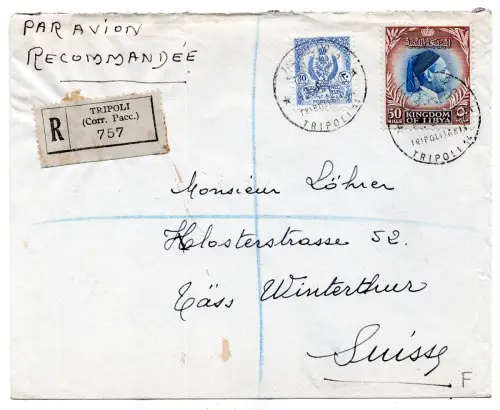 PAR AVION
RECOMMANDÉE
R
TRIPOLI
(Corr. Pacc.)
757
30
TRIPOLI
50
MILLS
KINGDOM
OF LIBYA
TRIPOLITANIA
TRIPOLI
Monsieur Löhrer
Klosterstrasse 52.
Täss Winterthur
Suisse
F